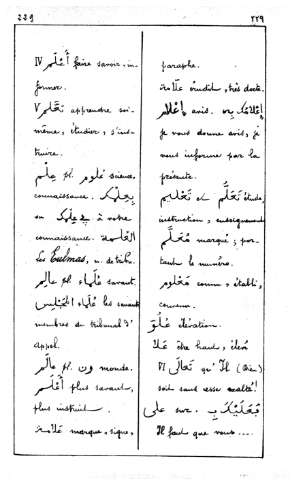 229
٢٢٩
IV أَعْلَم faire savoir, in-
former.
V تَعَلَّم apprendre soi-
même, étudier, s'ins-
truire.
عِلْم pl. علوم science,
connaissance. بِعِلْمِك
ou فى علمك à votre
connaissance. العُلَمة
Les Eulmas, n. de tribu.
عالِم pl. عُلَماء savant.
عُلَماء المَجْلِس les savants
membres du tribunal d'
appel.
عالَم pl. ون monde.
أَعْلَم plus savant,
plus instruit.
علامة marque, signe,
paraphe.
علّامة érudit, très docte.
إعلام avis.
je vous donne avis, je
vous informe par la
présente.
تَعَلُّم et تَعْليم étude,
instruction, enseignement
مُعَلَّم marqué; por-
tant le numéro.
مَعْلوم connu, établi,
convenu.
عُلُوّ élévation.
عَلا être haut, élevé
VI تَعالَى qu'Il (Dieu)
soit sans cesse exalté!
على sur. فعليك ب
Il faut que vous....